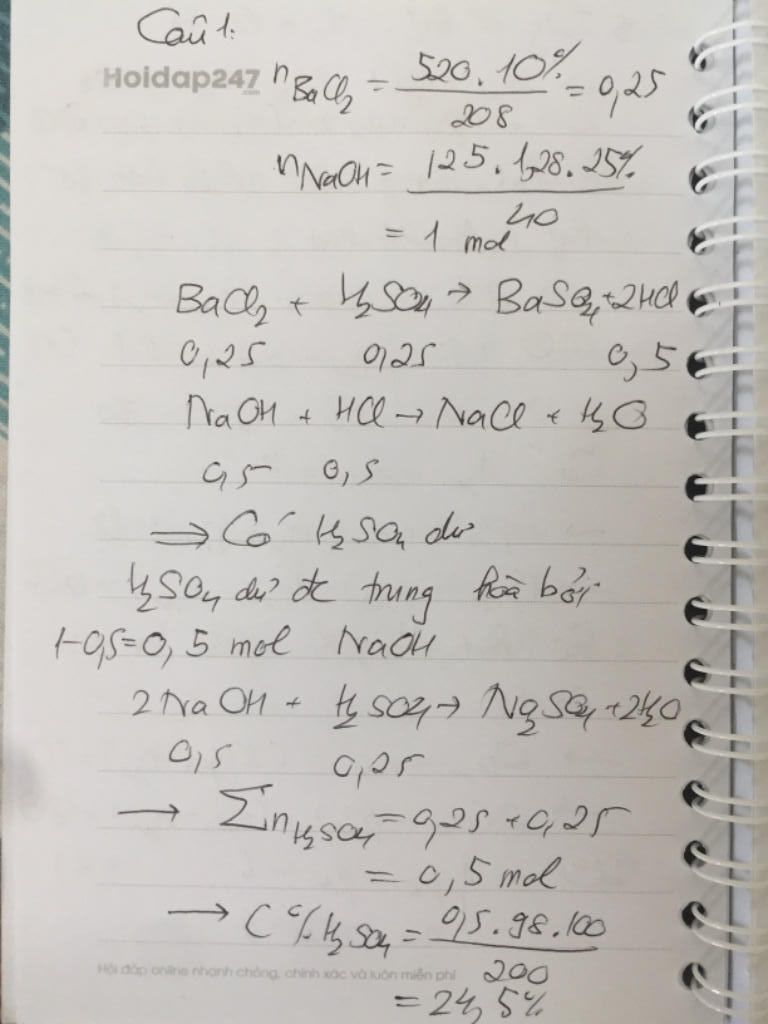 Câu 1:
Hoidap247.com
nBaCl₂ = 520.10% / 208 = 0,25
nNaOH = 125.1,28.25% / 40
= 1 mol
BaCl₂ + H₂SO₄ → BaSO₄ + 2HCl
0,25 0,25 0,5
NaOH + HCl → NaCl + H₂O
0,5 0,5
⇒ Có H₂SO₄ dư
H₂SO₄ dư đc trung hoà bởi
1-0,5=0,5 mol NaOH
2NaOH + H₂SO₄ → Na₂SO₄ + 2H₂O
0,5 0,25
→ ΣnH₂SO₄ = 0,25 + 0,25
= 0,5 mol
→ C% H₂SO₄ = 0,5.98.100 / 200
Hỏi đáp online nhanh chóng, chính xác và luôn miễn phí
= 24,5%